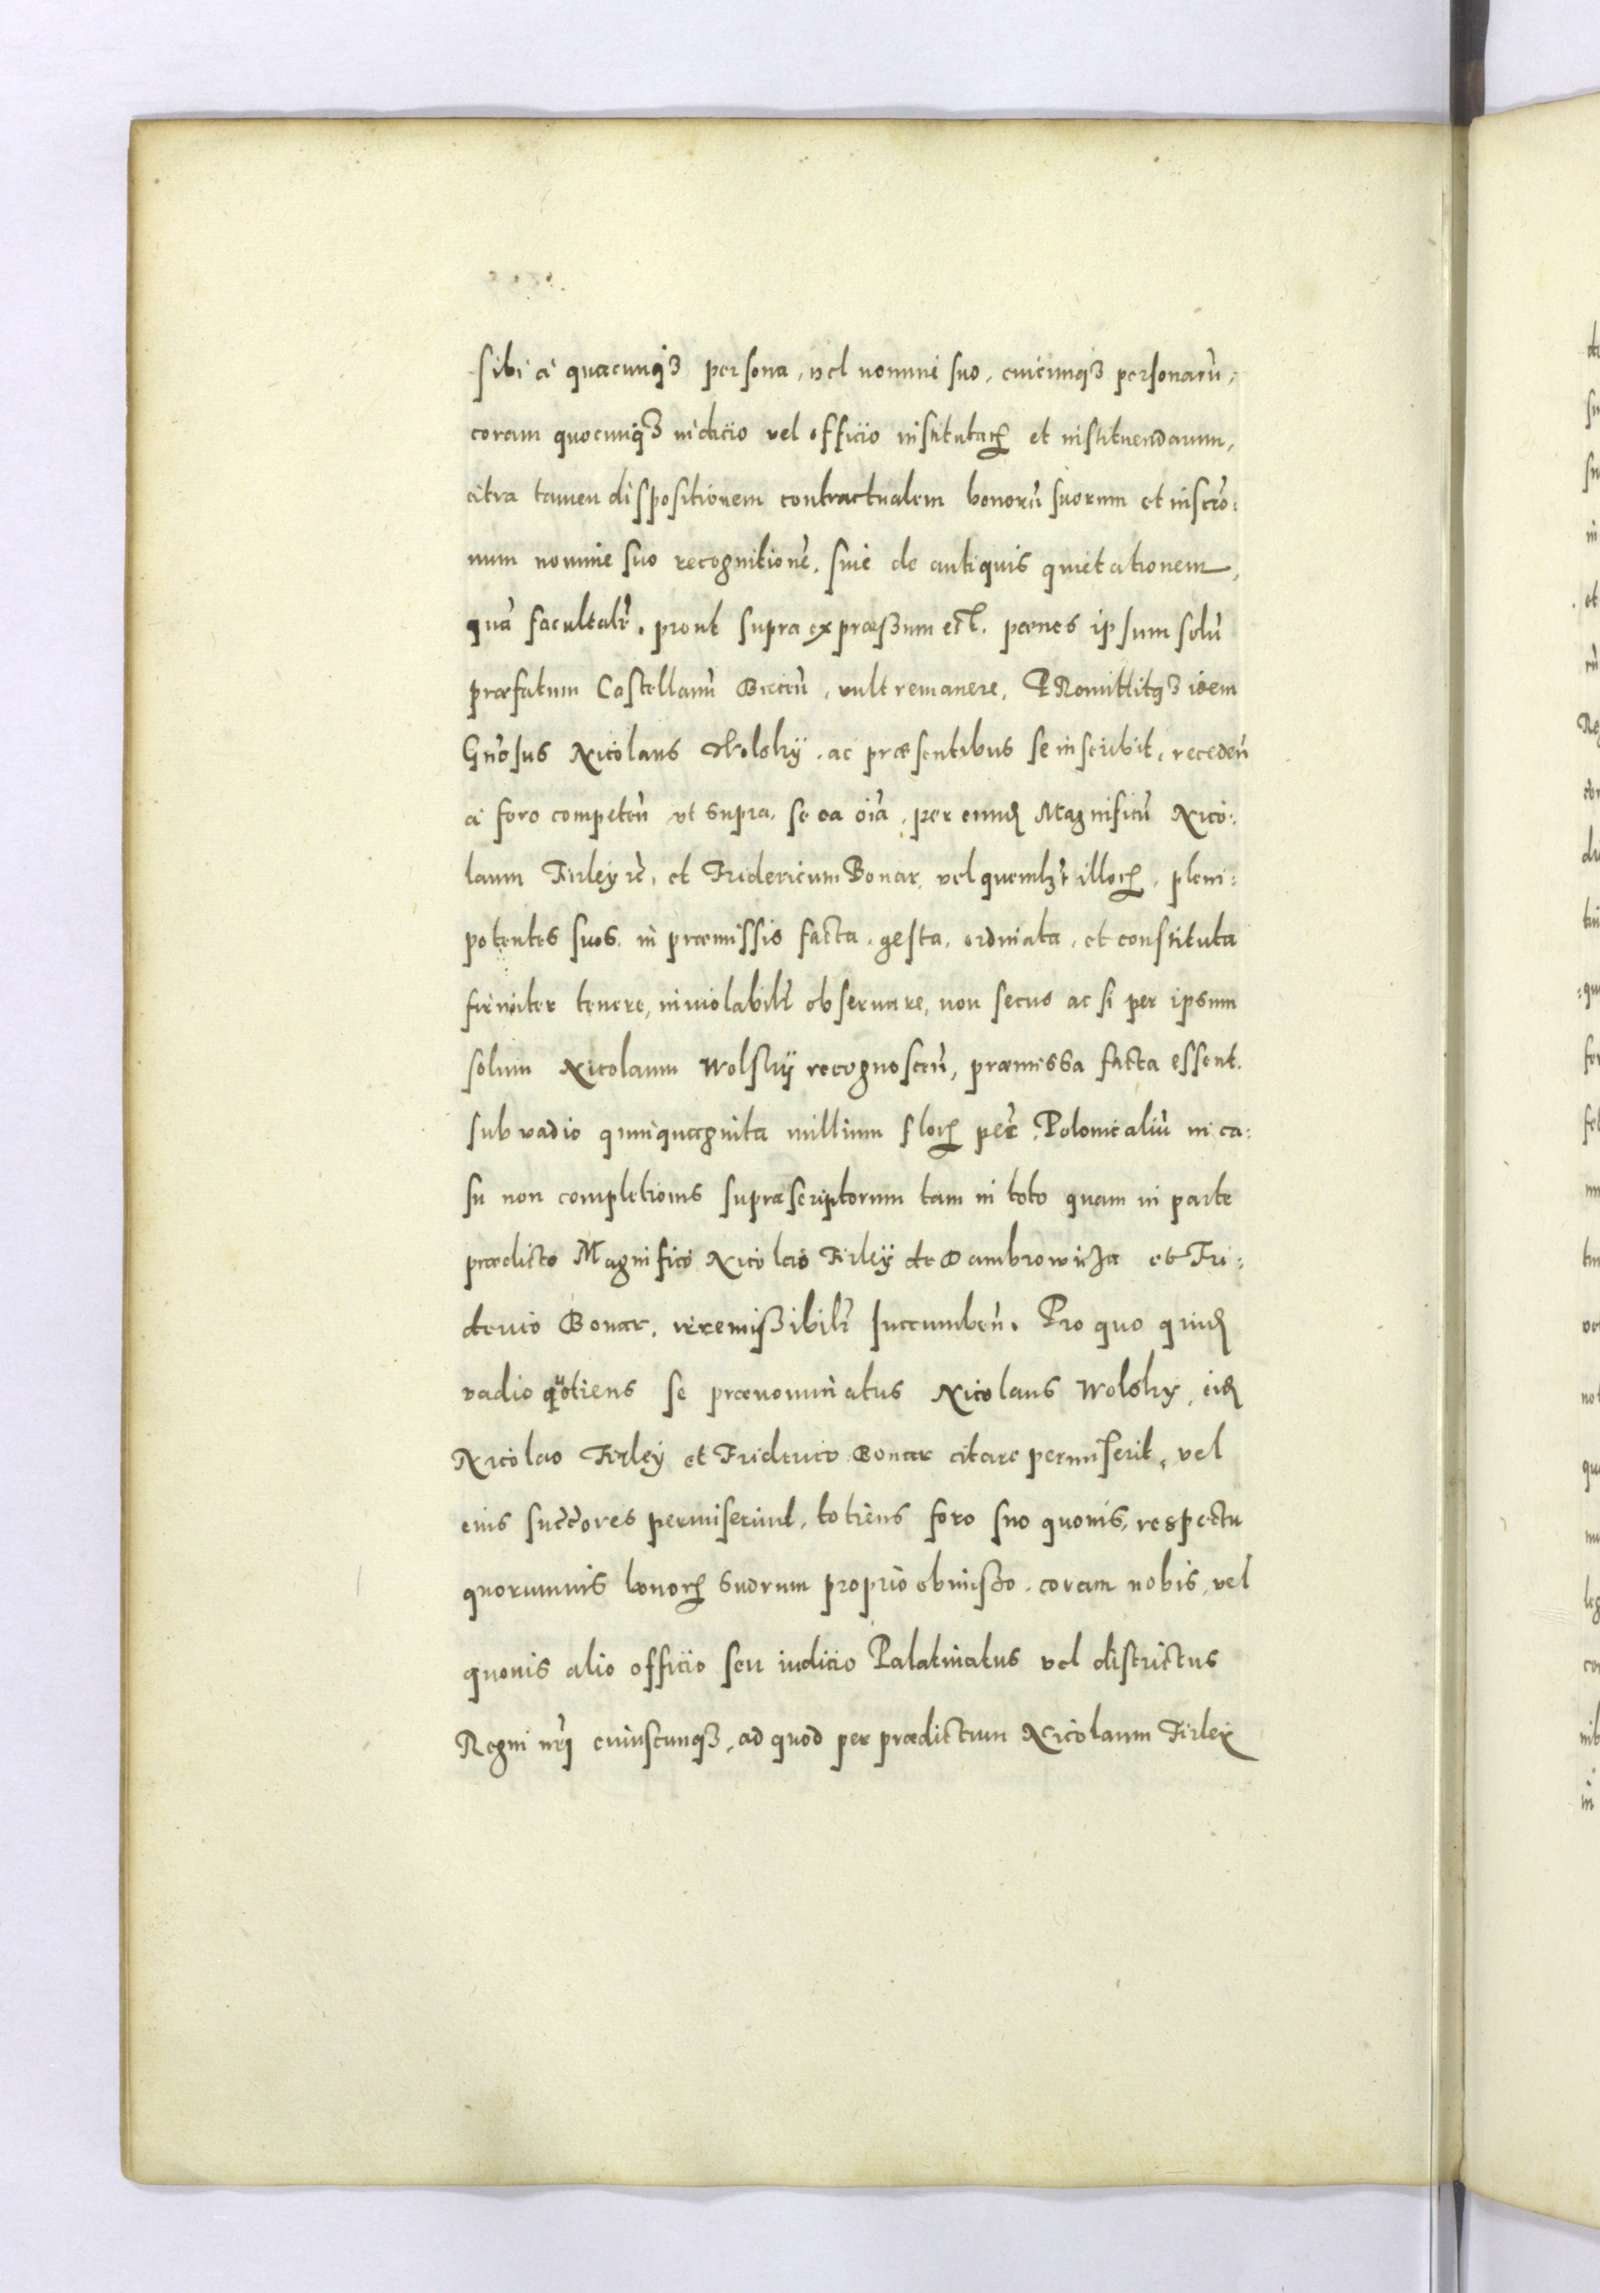 sibi a quacunqȝ persona, vel nomine suo, cuicunqȝ personarū,
coram quocunqȝ iudicio vel officio institutarꝝ et instituendarum,
citra tamen dispositionem contractualem bonorū suorum et inscrō:
num nomine suo recognitionē, siue de antiquis quietationem,
quā facultatē, prout supra expræssum est, pœnes ipsum solū
præfatum Castellanū Biecen̄, vult remanere, PRomittitqȝ idem
Gn̄osus Nicolaus Wolsky, ac præsentibus se inscribit, receden̄
a foro competen̄ vt supra, se ea oīa, per eund̄ Magnificū Nico:
laum Firley rc̄, et Fridericum Bonar, vel quemlȝt illorꝝ, pleni:
potentes suos, in præmissis facta, gesta, ordinata, et constituta
firmiter tenere, inuiolabilr̄ obseruare, non secus ac si per ipsum
solum Nicolaum Wolsky recognoscen̄, præmissa facta essent.
sub vadio quinquaginta millium florꝝ pec̄ Polonicaliū in ca:
su non completionis supræscriptorum tam in toto quam in parte
prædicto Magnifico Nicolao Firleÿ de Dambrowicza et Fri:
derico Bonar, irremissibilr̄ succumben̄. Pro quo quid̄
vadio quotiens se prænominatus Nicolaus Wolsky, eid̄
Nicolao Firleÿ et Friderico Bonar citare permiserit, vel
eius succ̄ores permiserint, totiens foro suo quouis, respectu
quorumuis bonorꝝ suorum proprio obmisso, coram nobis, vel
quouis alio officio seu iudicio Palatinatus vel districtus
Regni nr̄i cuiuscunqȝ, ad quod per prædictum Nicolaum Firleÿ